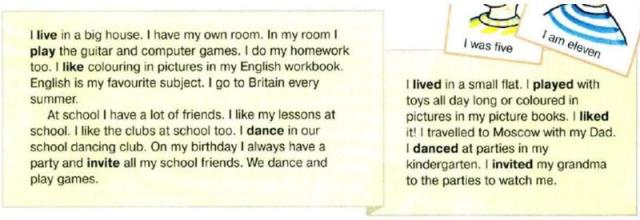 I live in a big house. I have my own room. In my room I
play the guitar and computer games. I do my homework
too. I like colouring in pictures in my English workbook.
English is my favourite subject. I go to Britain every
summer.
At school I have a lot of friends. I like my lessons at
school. I like the clubs at school too. I dance in our
school dancing club. On my birthday I always have a
party and invite all my school friends. We dance and
play games.
I was five
I am eleven
I lived in a small flat. I played with
toys all day long or coloured in
pictures in my picture books. I liked
it! I travelled to Moscow with my Dad.
I danced at parties in my
kindergarten. I invited my grandma
to the parties to watch me.